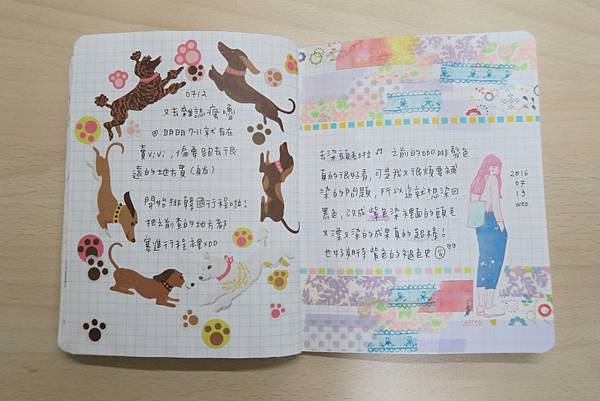 0712
又去雜誌瘋嚕
明明7-11就有在
賣ViVi,偏要跑去很
遠的地買(自助)
開始排韓國行程啦!
把之前查的地方都
塞進行程裡XDD
去染頭毛啦♫ 之前的 髮色
真的很好看,可是我又很煩要補
染的問題,所以這次想染回
黑色,改成紫色染裡面的頭毛
又漂又染的成果真的超棒!
也好期待紫色的褪色史
2016
07
13
wed.